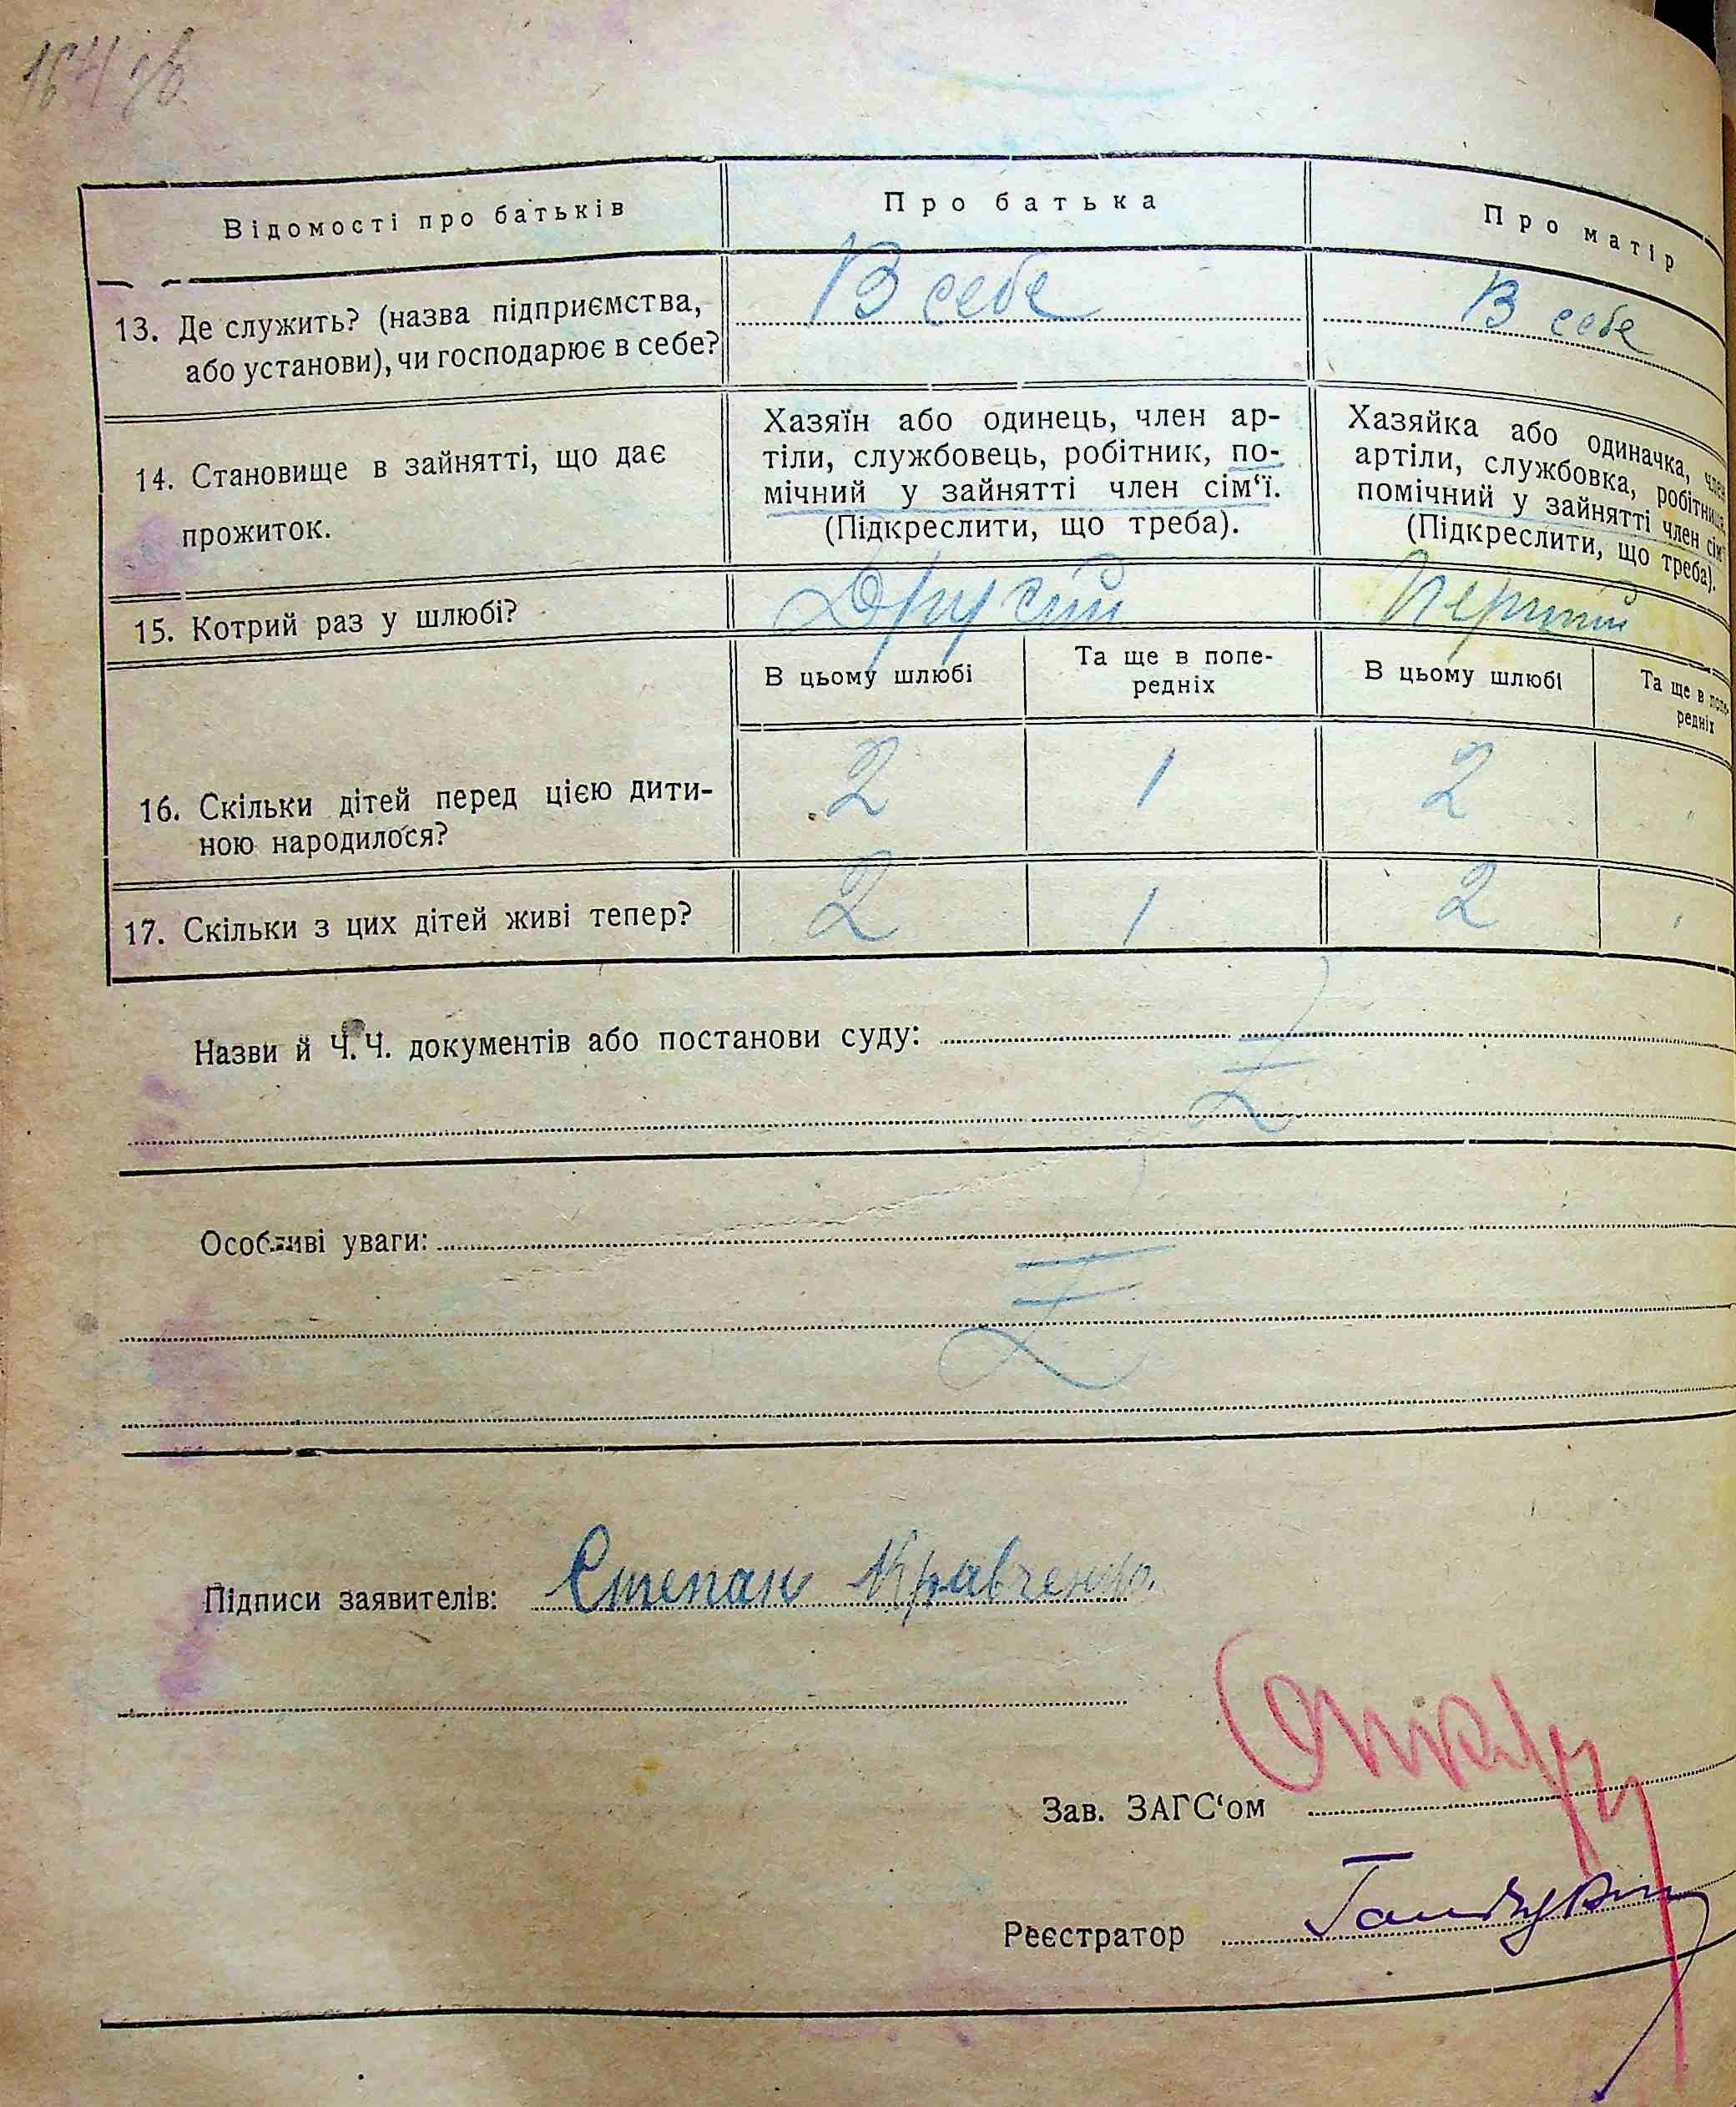 164 зв.
Відомості про батьків
Про батька
Про матір
13. Де служить? (назва підприємства,
або установи), чи господарює в себе?
В себе
В себе
14. Становище в зайнятті, що дає
прожиток.
Хазяїн або одинець, член ар-
тіли, службовець, робітник, по-
мічний у зайнятті член сім‘ї.
(Підкреслити, що треба).
Хазяйка або одиначка, член
артіли, службовка, робітниця,
помічний у зайнятті член сім‘
(Підкреслити, що треба).
15. Котрий раз у шлюбі?
Другий
Перший
В цьому шлюбі
Та ще в попе-
редніх
В цьому шлюбі
Та ще в попе-
редніх
16. Скільки дітей перед цією дити-
ною народилося?
2
1
2
17. Скільки з цих дітей живі тепер?
2
1
2
Назви й Ч.Ч. документів або постанови суду:
Особливі уваги:
Підписи заявителів: Степан Кравченко.
Зав. ЗАГС‘ом
Реєстратор